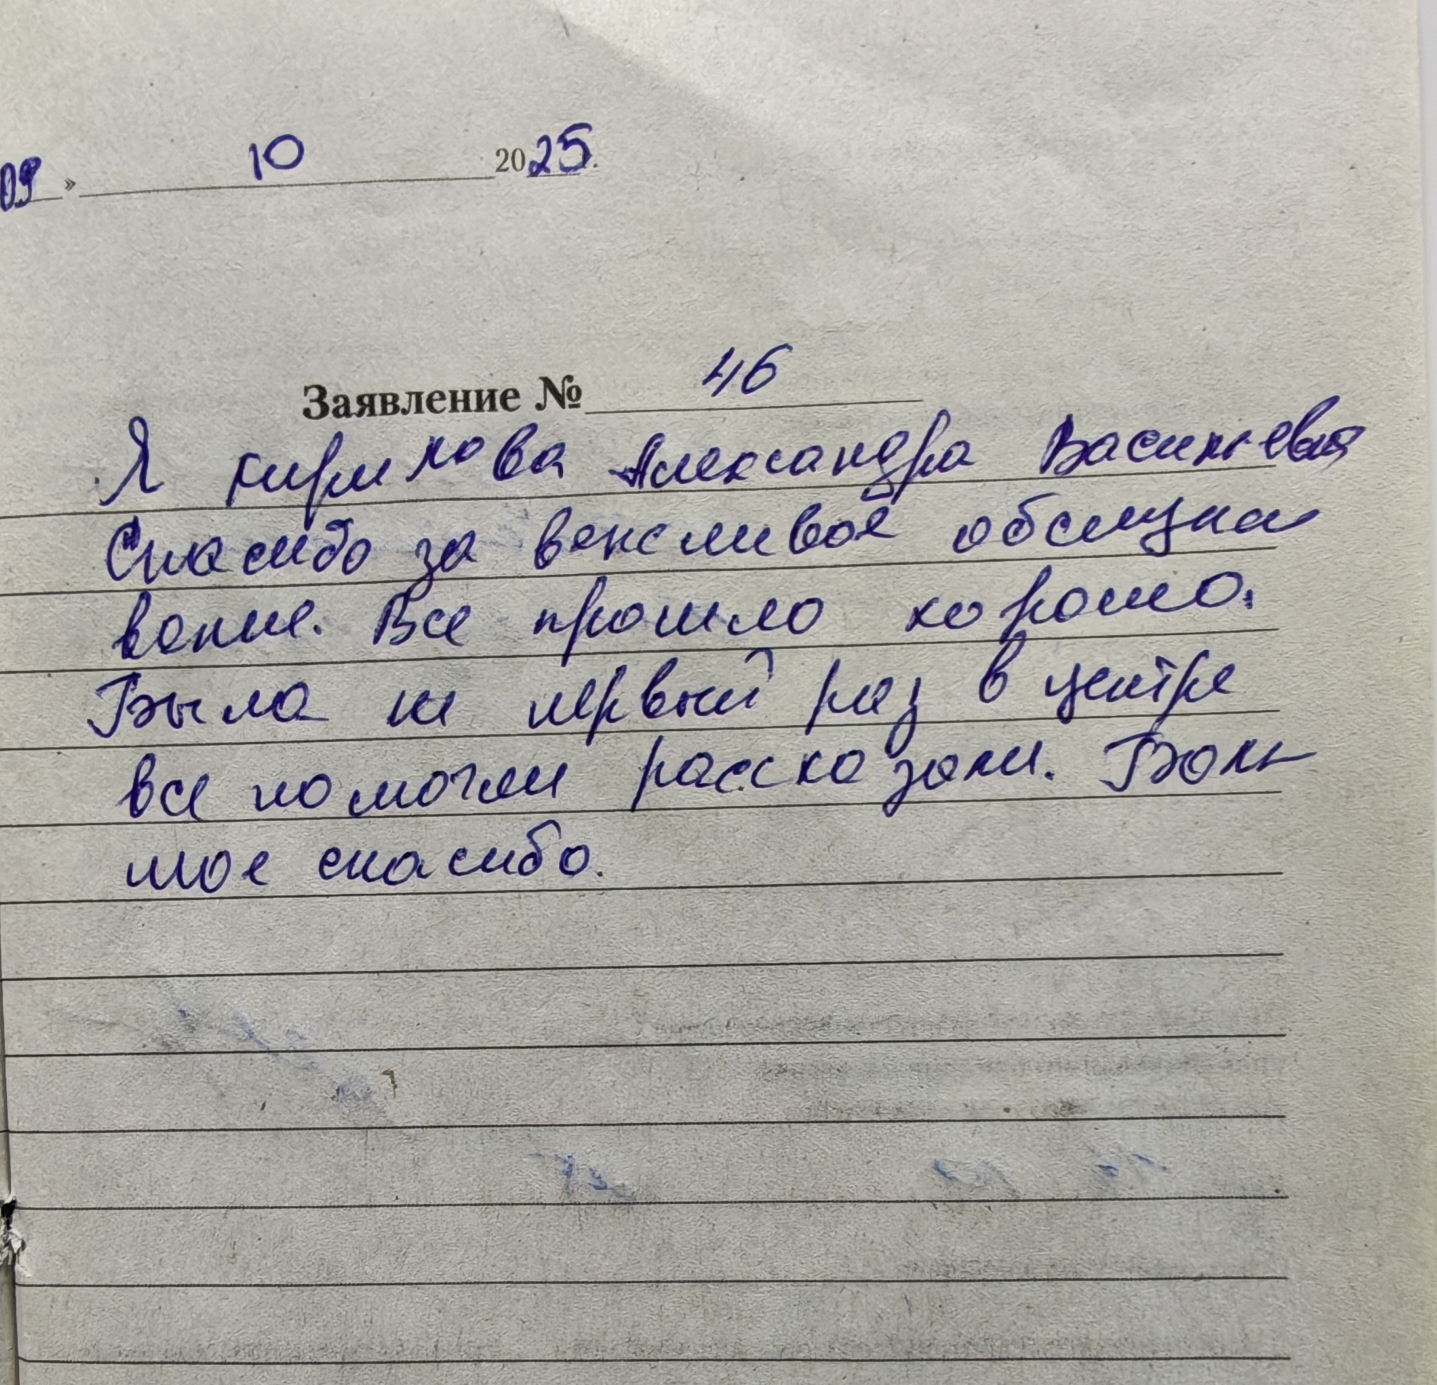 09 » 10 2025.
Заявление № 46
Я Кирилова Александра Васильевна
Спасибо за вежливое обслужи
вание. Все прошло хорошо.
Была не первый раз в центре
все помогли рассказали. Боль
шое спасибо.